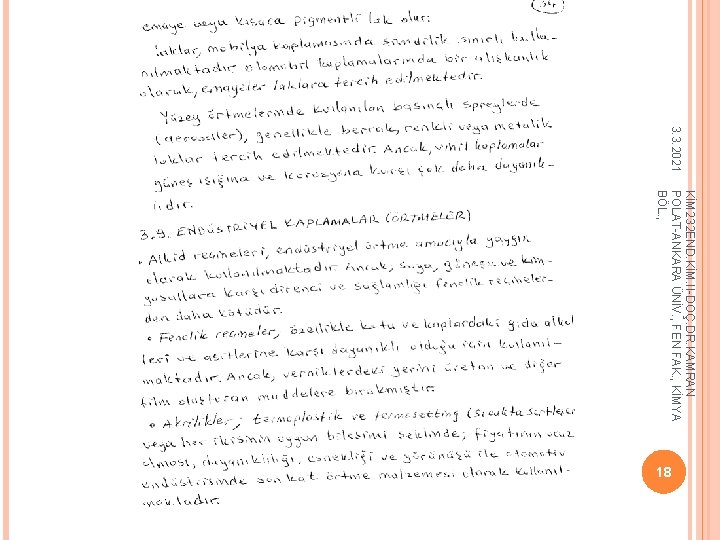 emaye veya kısaca pigmentli lak olur.
Laklar, mobilya kaplamasında şimdilik sınırlı kulla-
nılmaktadır, otomobil kaplamalarında bir alışkanlık
olarak, emayeler laklara tercih edilmektedir.
Yüzey örtmelerinde kullanılan basınçlı spreylerde
(aerosoller), genellikle berrak, renkli veya metalik
laklar tercih edilmektedir. Ancak, vinil kaplamalar
güneş ışığına ve korozyona karşı çok daha dayanık-
lıdır.
3.9. ENDÜSTRİYEL KAPLAMALAR (ÖRTMELER)
• Alkid reçineleri, endüstriyel örtme amacıyla yaygın
olarak kullanılmaktadır. Ancak, suya, güneşe ve kim-
yasallara karşı direnci ve sağlamlığı fenolik reçineler-
den daha kötüdür.
• Fenolik reçineler, özellikle kutu ve kaplardaki gıda alkol
leri ve asitlerine karşı dayanıklı olduğu için kullanıl-
maktadır. Ancak, verniklerdeki yerini üretan ve diğer
film oluşturan maddelere bırakmıştır.
• Akrilikler; termoplastik ve termosetting (sıcakta sertleşen
veya her ikisinin uygun bileşimi şeklinde; fiyatının ucuz
olması, dayanıklılığı, esnekliği ve görünüşü ile otomotiv
endüstrisinde son kat örtme malzemesi olarak kullanıl-
maktadır.
3.3.2021
KİM 232 END.KİM.II-DOÇ.DR.KAMRAN
POLAT-ANKARA ÜNİV., FEN FAK., KİMYA
BÖL.,
18